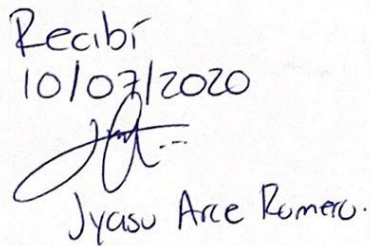 Recibí
10/07/2020
Jyasu Arce Romero.